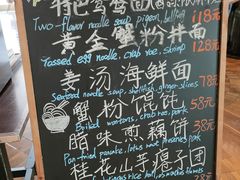 Two-flavor noodle soup, pigeon, bullfrog 118元
黄金蟹粉拌面
Tossed egg noodle, crab roe, shrimp 128元
姜汤海鲜面
Seafood noodle soup, shellfish, ginger slices 78元
蟹粉馄饨
Boiled wontons, crab roe, pork 58元
腊味煎藕饼
Pan-fried pancake, lotus root, preserved pork 38元
桂花山芋瘪子团
rice ball, 28元